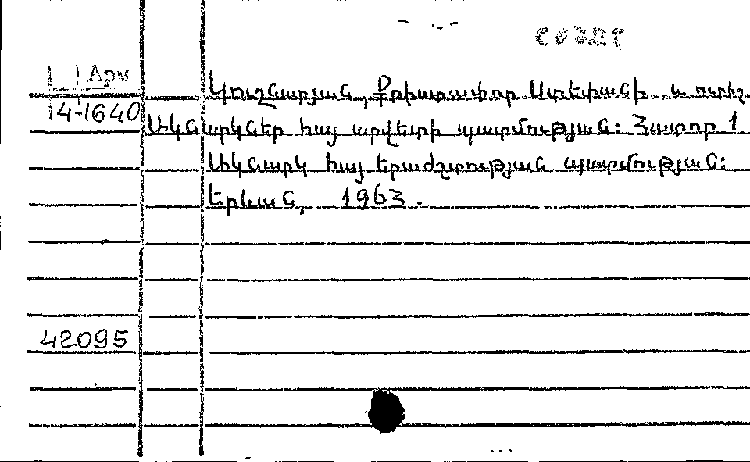 Արվ
14-1640
Կուշնարյան, Քրիստափոր Ստեփանի և ուրիշ.
Ակնարկներ հայ արվեստի պատմության: Հատոր 1
Ակնարկ հայ երաժշտության պատմության:
Երևան, 1963.
42095